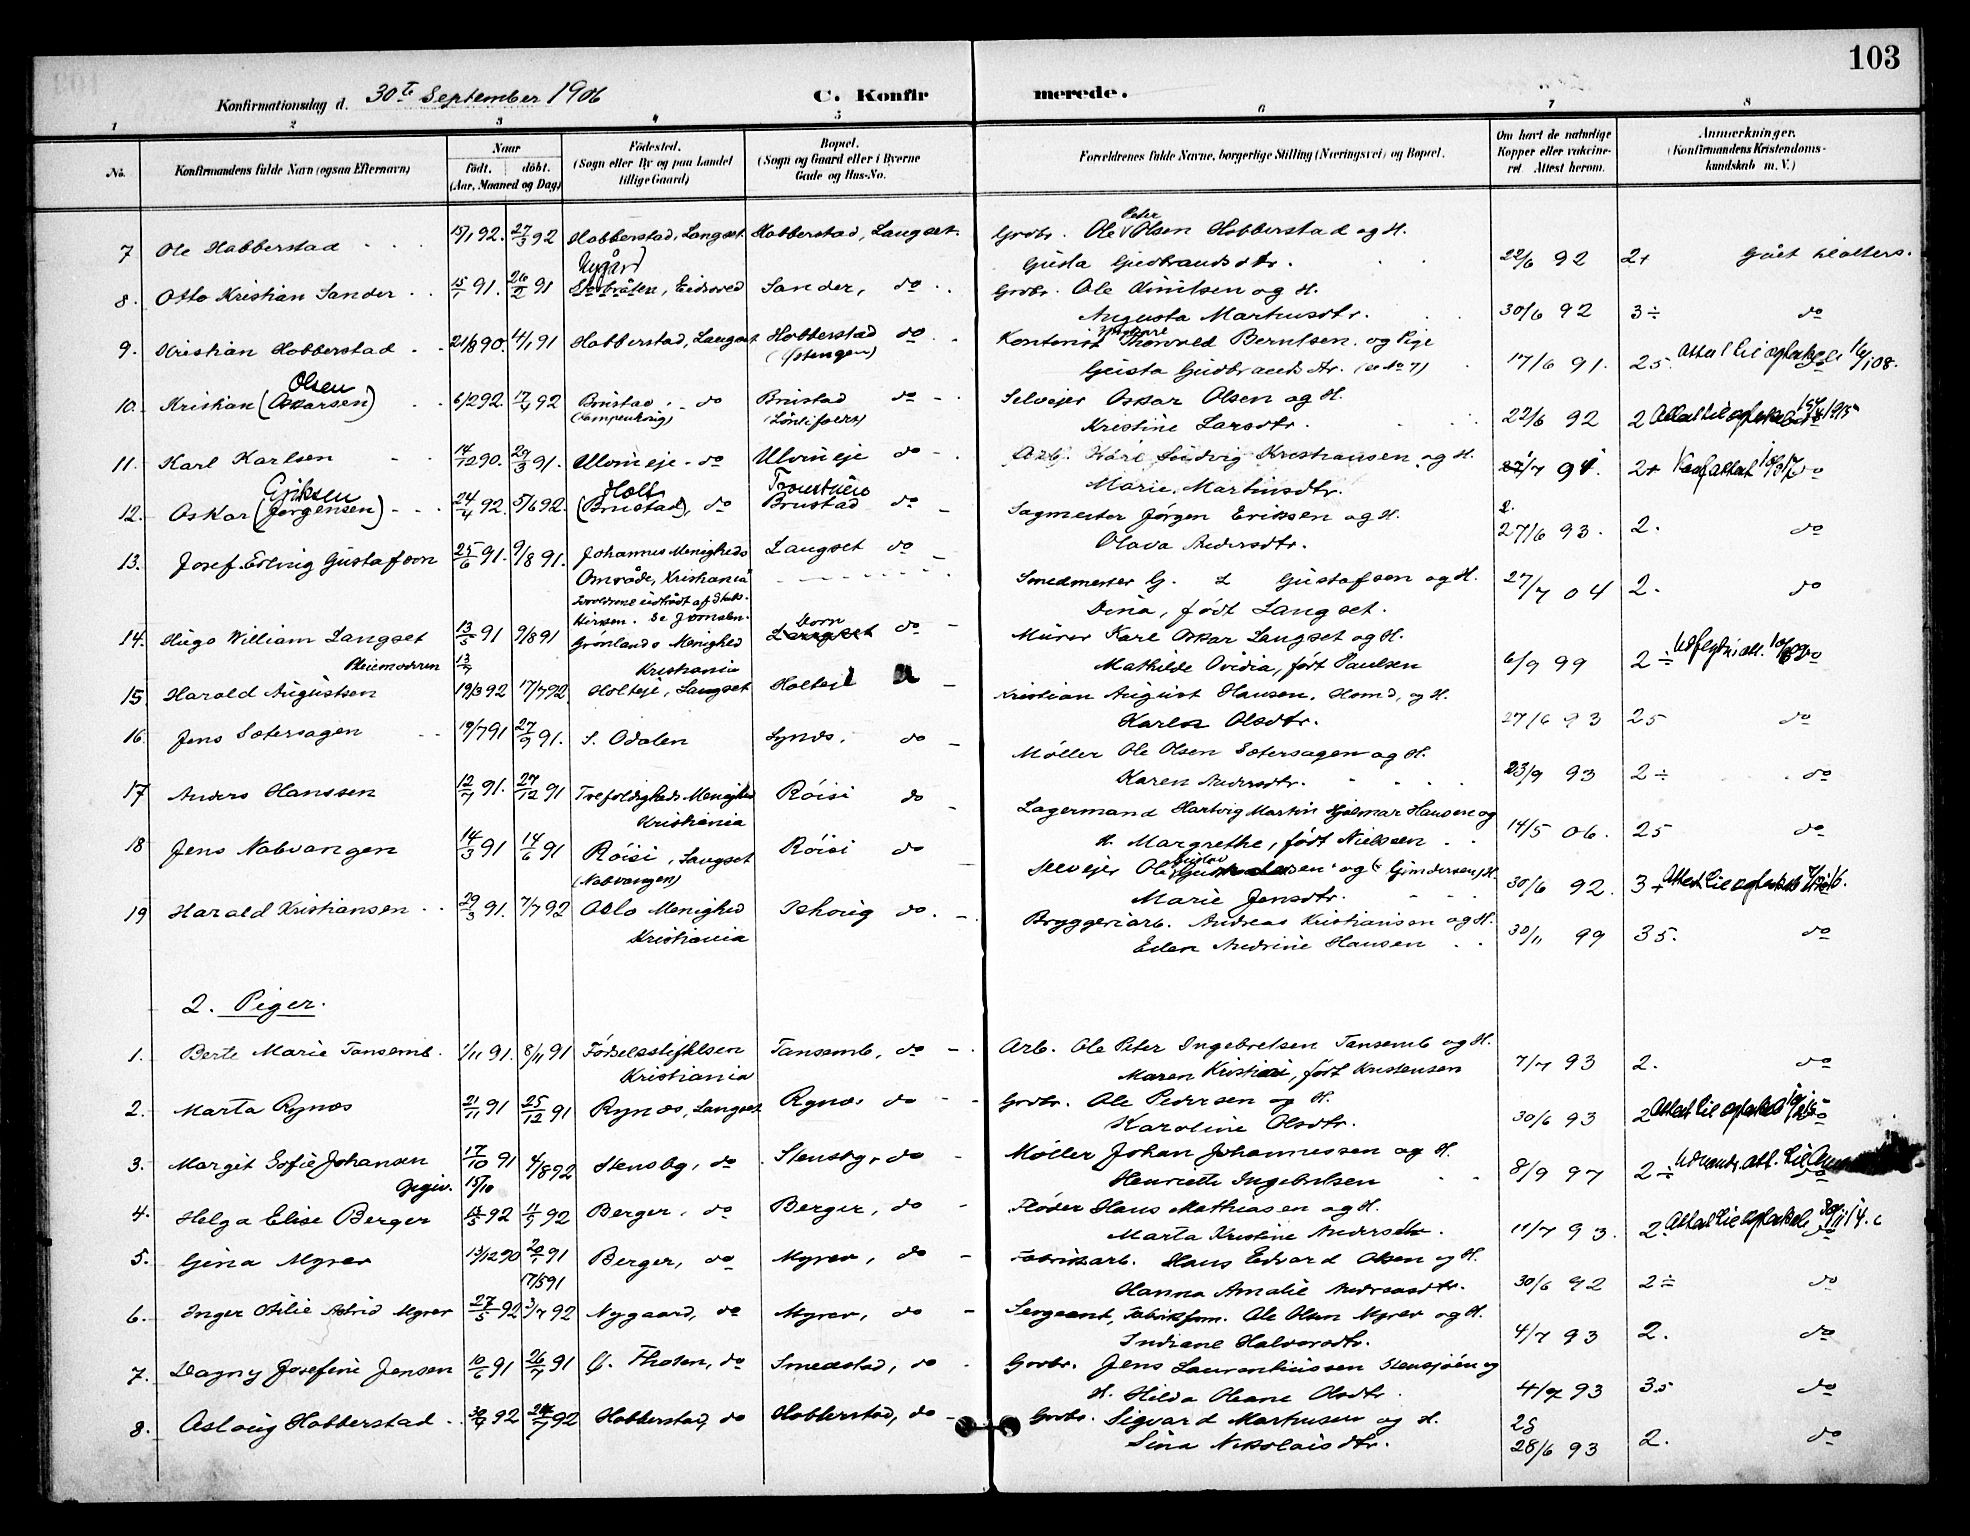 103
Konfirmationsdag d. 30te September 1906 C. Konfirmerede.
1 2 3 4 5 6 7 8
No. Konfirmandens fulde Navn (ogsaa Efternavn) Naar født. døbt. (Aar, Maaned og Dag) Fødested. (Sogn eller By og paa Landet tillige Gaard) Bopæl. (Sogn og Gaard eller i Byerne Gade og Hus-No. Forældrenes fulde Navne, borgerlige Stilling (Næringsvei) og Bopæl. Om havt de naturlige Kopper eller vakcineret. Attest herom. Anmerkninger. (Konfirmandens Kristendomskundskab m. V.)
7 Ole Hobberstad 15/1 92. 27/3 92 Hobberstad, Langset Hobberstad, Langset. Grdbr. Ole Peter Olsen Hobberstad og H.
Gusta Gudbrandsdtr. 22/6 92 2+ Gået til alters.
8. Otto Kristian Sander 15/1 91. 26/2 91 Nygård Stubråten, Eidsvold Sander, do Grdbr. Ole Knutsen og H.
Augusta Martinsdtr. 30/6 92 3÷ do
9. Kristian Hobberstad 21/8 90. 11/1 91 Hobberstad, Langset Hobberstad do Kontorist Thorvald Berntsen og Pige
(Stengen) Gusta Gudbrandsdtr. (se No 7) 17/6 91. 25. Attest til ægteskab 16/1 08.
10. Kristian (Oskarsen) Olsen 6/2 92. 17/4 92 Brustad, do Brustad do Selveier Oskar Olsen og H.
Kristine Larsdtr. 22/6 92 2 Attest til ægteskab
11. Karl Karlsen 14/12 90. 29/3 91. Ulvineje, do Ulvineje do Arb. Karl Ludvig Kristiansen og H.
Marie Martinsdtr. 91. 2+ do
12. Oskar (Jørgensen) Eriksen 24/4 92. 5/6 92. Holt (Brustad), do Brustad do Sagmester Jørgen Eriksen og H.
Olava Andersdtr. 27/6 93. 2. do
13. Josef Erling Gustafson 25/6 91. 9/8 91. Johannes Menigheds Langset do Smedmester G. L Gustafsen og H.
Område, Kristiania
Forældrene udtrådt af Stats- Dina, født Langset. 27/7 04 2. do
kirken.
14. Hugo William Langset 13/5 91 9/8 91 Grønlands Menighed Langset Dorn do Murer Karl Oskar Langset og H.
Pleiemoderen 13/7 Kristiania Mathilde Ovidia, født Paulsen 6/9 99 2÷ do
15. Harald Augustsen 19/3 92 17/7 92. Holteje, Langset Holteje Kristian August Hansen, Homd, og H.
Karen Olsdtr. 27/6 93 25 do
16. Jens Sætersagen 19/7 91 27/9 91. S. Odalen Synds. do Møller Ole Olsen Sætersagen og H.
Karen Andersdtr. 23/9 93 2÷ do
17 Anders Hanssen 12/7 91. 27/12 91 Trefoldigheds Menighed Røisi do Lagermand Hartvig Martin Hjalmar Hansen og
Kristiania H. Margrethe, født Nielssen 14/5 06. 25 do
18 Jens Nabvangen 14/3 91 14/6 91 Røisi, Langset Røisi do Selveier Ole Gustav og (Gundersen) H.
(Nabvangen) Marie Jensdtr. 30/6 92. 3+ Attest til ægteskab
19 Harald Kristiansen 29/3 91. 7/7 92 Oslo Menighed Ishoug do. Bryggeriarb. Andreas Kristiansen og H.
Kristiania Eden Andrine Hansen 30/11 99 35. do
2. Piger.
1. Berte Marie Tansemb. 1/11 91. 8/11 91 Fødselsstiftelsen Tansemb, do Arb. Ole Peter Ingebretsen Tansemb og H.
Kristiania Maren, født Kristensen 7/7 93 2. do
2. Marta Rynæs 21/11 91 25/12 91 Rynæs, Langset Rynæs do Grdbr. Ole Pedersen og H.
Karoline Olsdtr. 30/6 93 2 Attest til ægteskab
3. Margit Sofie Johansen 17/10 91 4/8 92 Stensby, do Stensby, do Møller Johan Johannessen og H.
15/10 Henriette Ingebretsen 8/9 97 2÷
4. Helga Elise Berger 92 11/9 92 Berger, do Berger, do Fløder Hans Mathiesen og H.
Marta Kristine Andersdtr. 11/7 93. 2. Attest til ægteskab
5. Gina Myrer 13/12 90 91 Berger, do Myrer, do Fabrikarb. Hans Edvard Olsen og H.
17/5 91 Hanna Amalie Andreasdtr. 30/6 92 2÷ do
6. Inger Otilie Astrid Myrer 27/5 92 3/7 92 Nygaard, do Myrer, do Sergeant, Fabrikfom. Ole Olsen Myrer og H.
Indiane Halvorsdtr. 4/7 93 2. do
7. Dagny Josefine Jensen 10/6 91 26/7 91 Tholen, do Smedstad, do Grdbr. Jens Laurenthiussen Stensjøen og
H. Hilda Oleane Olsdtr. 93 35 do
8. Aslaug Hobberstad 92 92 Hobberstad, do Hobberstad, do Grdbr. Sigvard Martinsen og H.
Sina Nikolaisdtr. 28/6 93 2. do